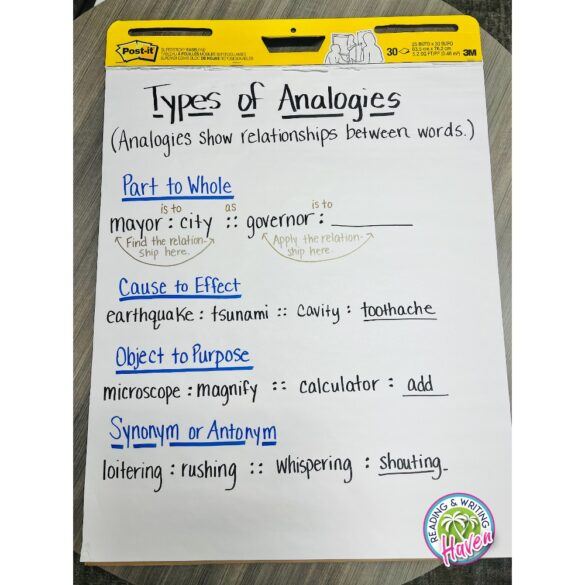 Post-it
25 BLTO x 30 BLPO
30
3M
Types of Analogies
(Analogies show relationships between words.)
Part to Whole
is to as is to
mayor : city :: governor : ________
Find the relation- Apply the relation-
ship here. ship here.
Cause to Effect
earthquake : tsunami :: cavity : toothache
Object to Purpose
microscope : magnify :: calculator : add
Synonym or Antonym
loitering : rushing :: whispering : shouting
READING & WRITING
Haven